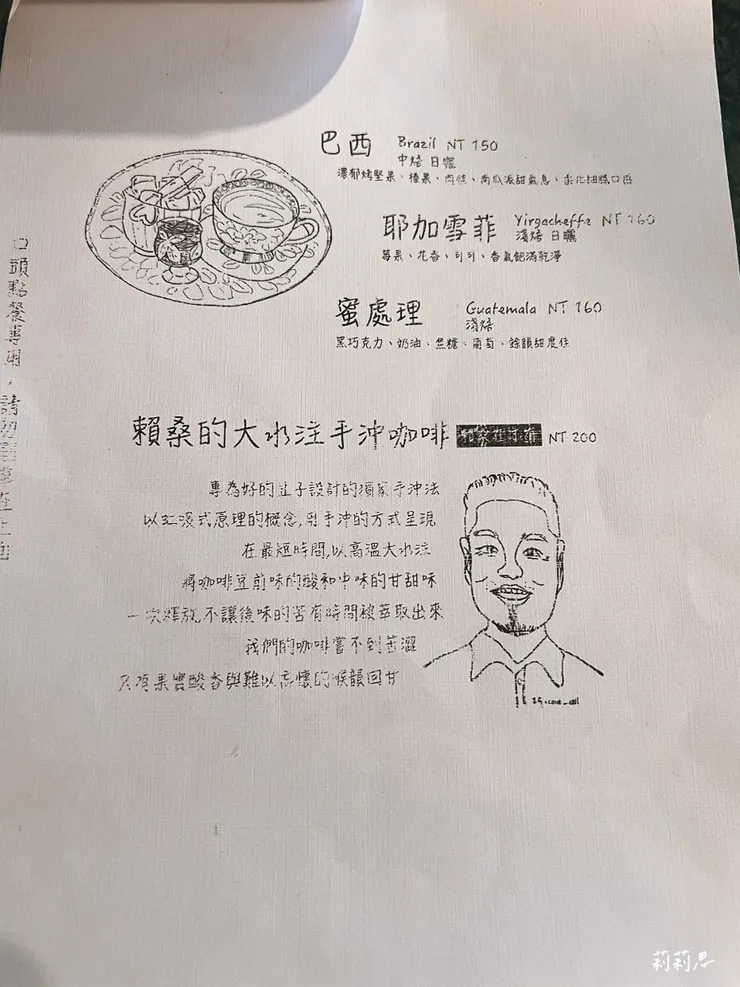 巴西 Brazil NT 150
中焙 日曬
濃郁烤堅果、榛果、肉桂、南瓜派甜氣息、柔化細膩口感
耶加雪菲 Yirgacheffe NT 160
淺焙 日曬
莓果、花香、可可、香氣飽滿乾淨
蜜處理 Guatemala NT 160
淺焙
黑巧克力、奶油、焦糖、葡萄、餘韻甜度佳
賴桑的大水注手沖咖啡 NT 200
專為好的豆子設計的獨家手沖法
以虹吸式原理的概念,用手沖的方式呈現
在最短時間,以高溫大水注
將咖啡豆前味的酸和中味的甘甜味
一次釋放,不讓後味的苦有時間被萃取出來
我們的咖啡嘗不到苦澀
只有果實酸香與難以忘懷的喉韻回甘
口頭點餐專用,請勿
莉莉思